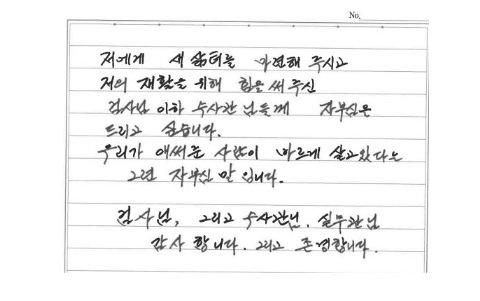 No.
저에게 새 삶터를 마련해 주시고
저의 재활을 위해 힘을 써 주신
검사님 이하 수사관 님들께 자부심을
드리고 싶습니다.
우리가 애써준 사람이 바르게 살고있다는
그런 자부심 말 입니다.
검사님, 그리고 수사관님, 실무관님
감사 합니다. 그리고 존경합니다.